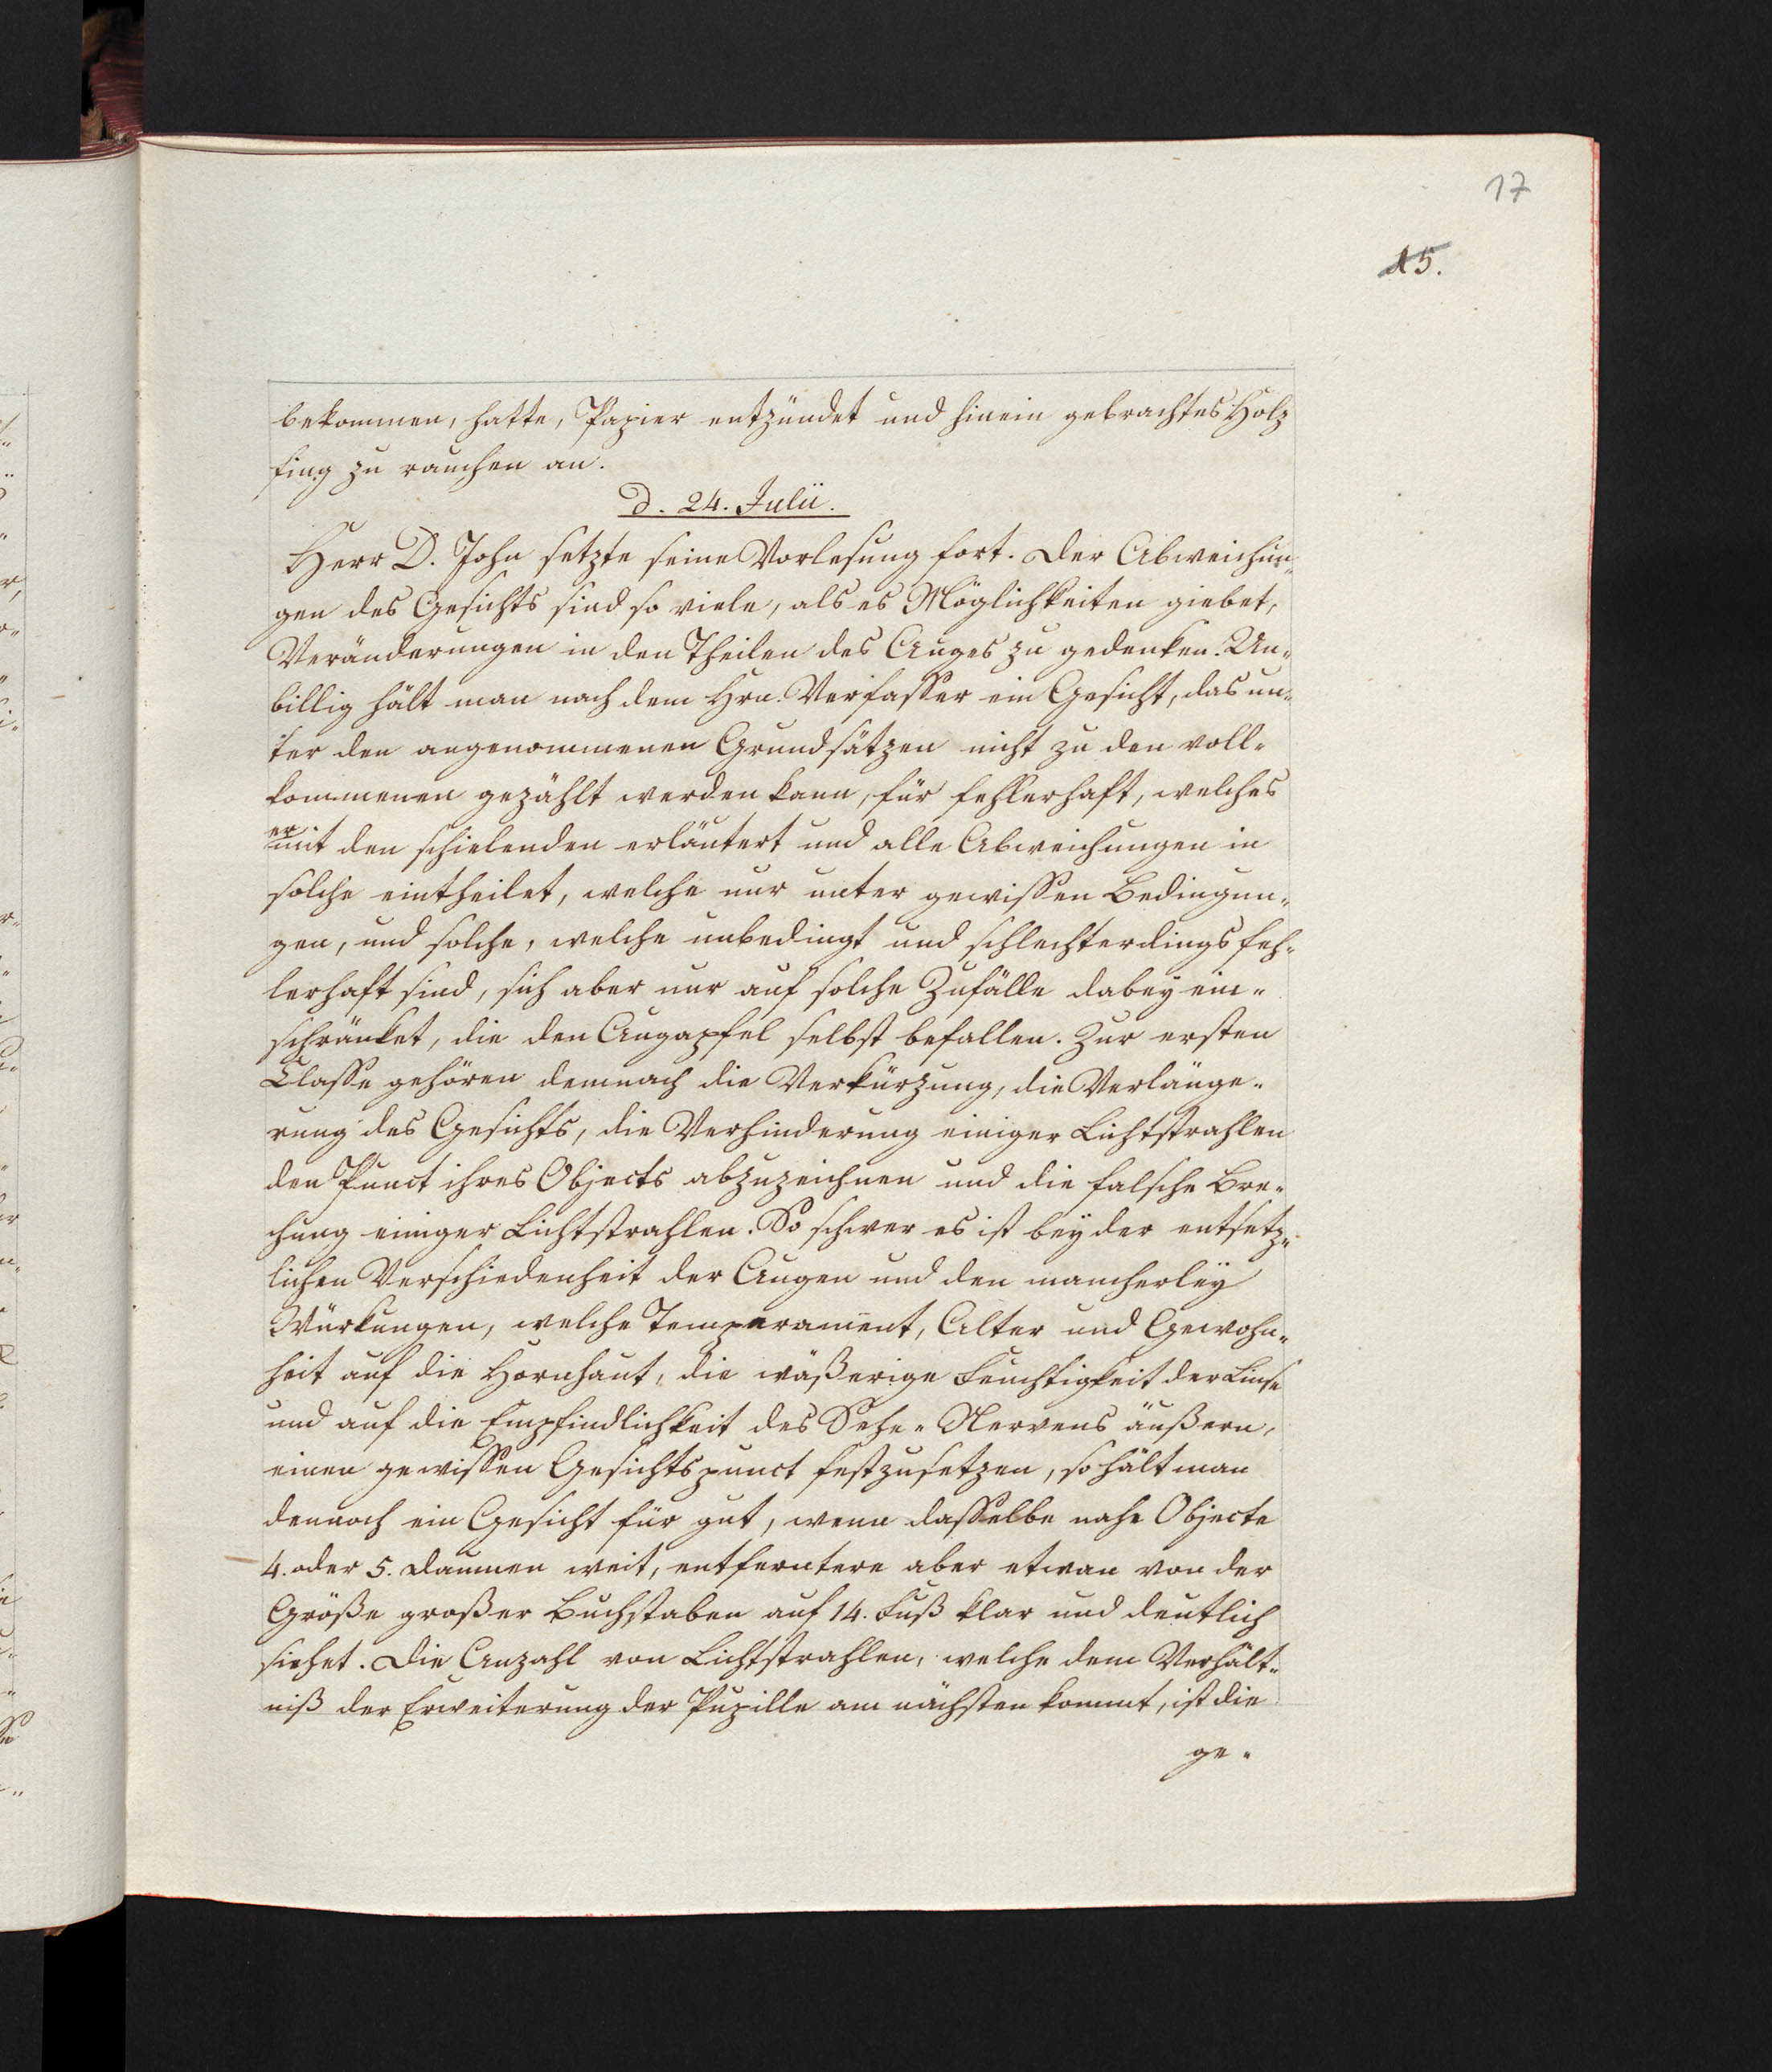 17
15.
bekommen, hatte, Papier entzündet und hinein gebrachtes Holz
fing zu rauchen an.
d. 24. Julii.
Herr D. John setzte seine Vorlesung fort. Der Abweichun-
gen des Gesichts sind so viele, als es Möglichkeiten giebet,
Veränderungen in den Theilen des Auges zu gedenken. Un-
billig hält man nach dem Hrn. Verfasser ein Gesicht, das un-
ter den angenommenen Grundsätzen nicht zu den voll-
kommenen gezählt werden kann, für fehlerhaft, welches
er mit den schielenden erläutert und alle Abweichungen in
solche eintheilet, welche nur unter gewissen Bedingun-
gen, und solche, welche unbedingt und schlechterdings feh-
lerhaft sind, sich aber nur auf solche Zufälle dabey ein-
schränket, die den Augapfel selbst befallen. Zur ersten
Classe gehören demnach die Verkürzung, die Verlänge-
rung des Gesichts, die Verhinderung einiger Lichtstrahlen
den Punct ihres Objects abzuzeichnen und die falsche Bre-
chung einiger Lichtstrahlen. So schwer es ist bey der entsetz-
lichen Verschiedenheit der Augen und den mancherley
Würkungen, welche Temperament, Alter und Gewohn-
heit auf die Hornhaut, die wäßerige Feuchtigkeit der Linse
und auf die Empfindlichkeit des Sehe-Nervens äußern,
einen gewissen Gesichtspunct festzusetzen, so hält man
dennoch ein Gesicht für gut, wenn dasselbe nahe Objecte
4. oder 5. Daumen weit, entferntere aber etwan von der
Größe großer Buchstaben auf 14. Fuß klar und deutlich
siehet. Die Anzahl von Lichtstrahlen, welche dem Verhält-
niß der Erweiterung der Pupille am nächsten kommt, ist die
ge-